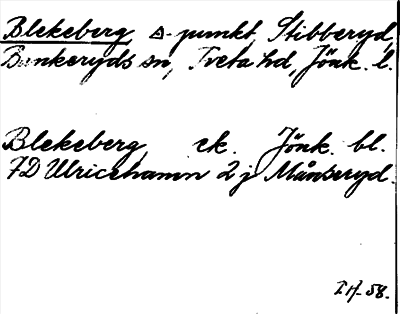 Blekeberg, △-punkt, Stibberyd,
Bankeryds sn, Tveta hd, Jönk. l.
Blekeberg ek. Jönk. bl.
7D Ulricehamn 2j Månseryd.
58.